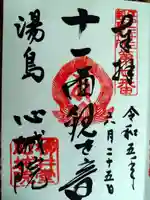 奉拝
令和五年
六月二十五日
十一面観世音
湯島
心城院